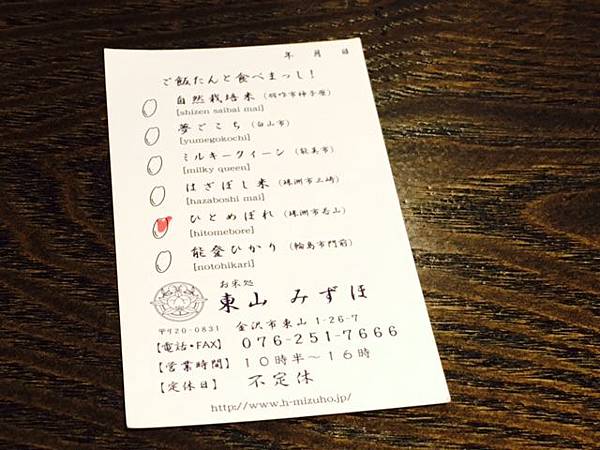 年 月 日
ご飯たんと食べまっし!
自然栽培米（羽咋市神子原）
[shizen saibai mai]
夢ごこち（白山市）
[yumegokochi]
ミルキークイーン（能美市）
[milky queen]
はざぼし米（珠洲市三崎）
[hazaboshi mai]
ひとめぼれ（珠洲市若山）
[hitomebore]
能登ひかり（輪島市門前）
[notohikari]
お米処
東山 みずほ
〒920-0831 金沢市東山 1-26-7
【電話・FAX】 076-251-7666
【営業時間】 10時半〜16時
【定休日】 不定休
http://www.h-mizuho.jp/